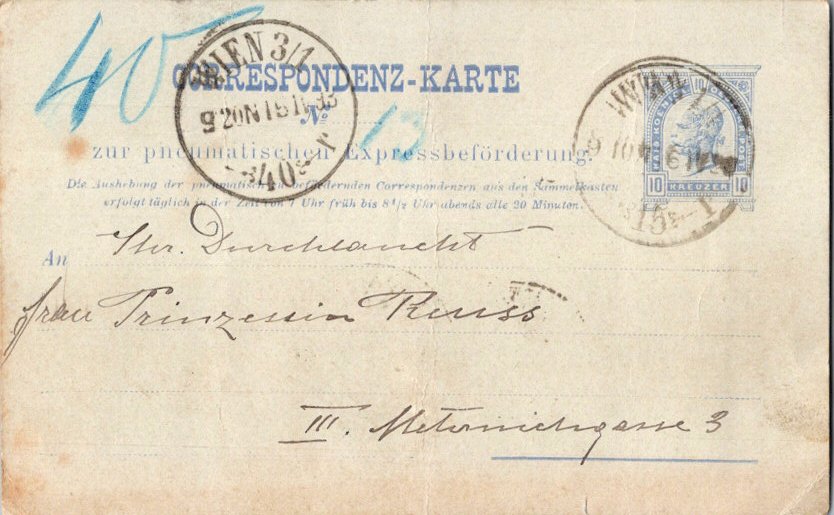 40
WIEN 3/1
CORRESPONDENZ-KARTE
No 13
zur pneumatischen Expressbeförderung.
Die Aushebung der pneumatisch zu befördernden Correspondenzen aus den Sammelkasten
erfolgt täglich in der Zeit von 7 Uhr früh bis 8½ Uhr abends alle 20 Minuten.
40
10 KREUZER 10
15
An Ihr. Durchlaucht
Frau Prinzessin Reuss
III. Metternichgasse 3